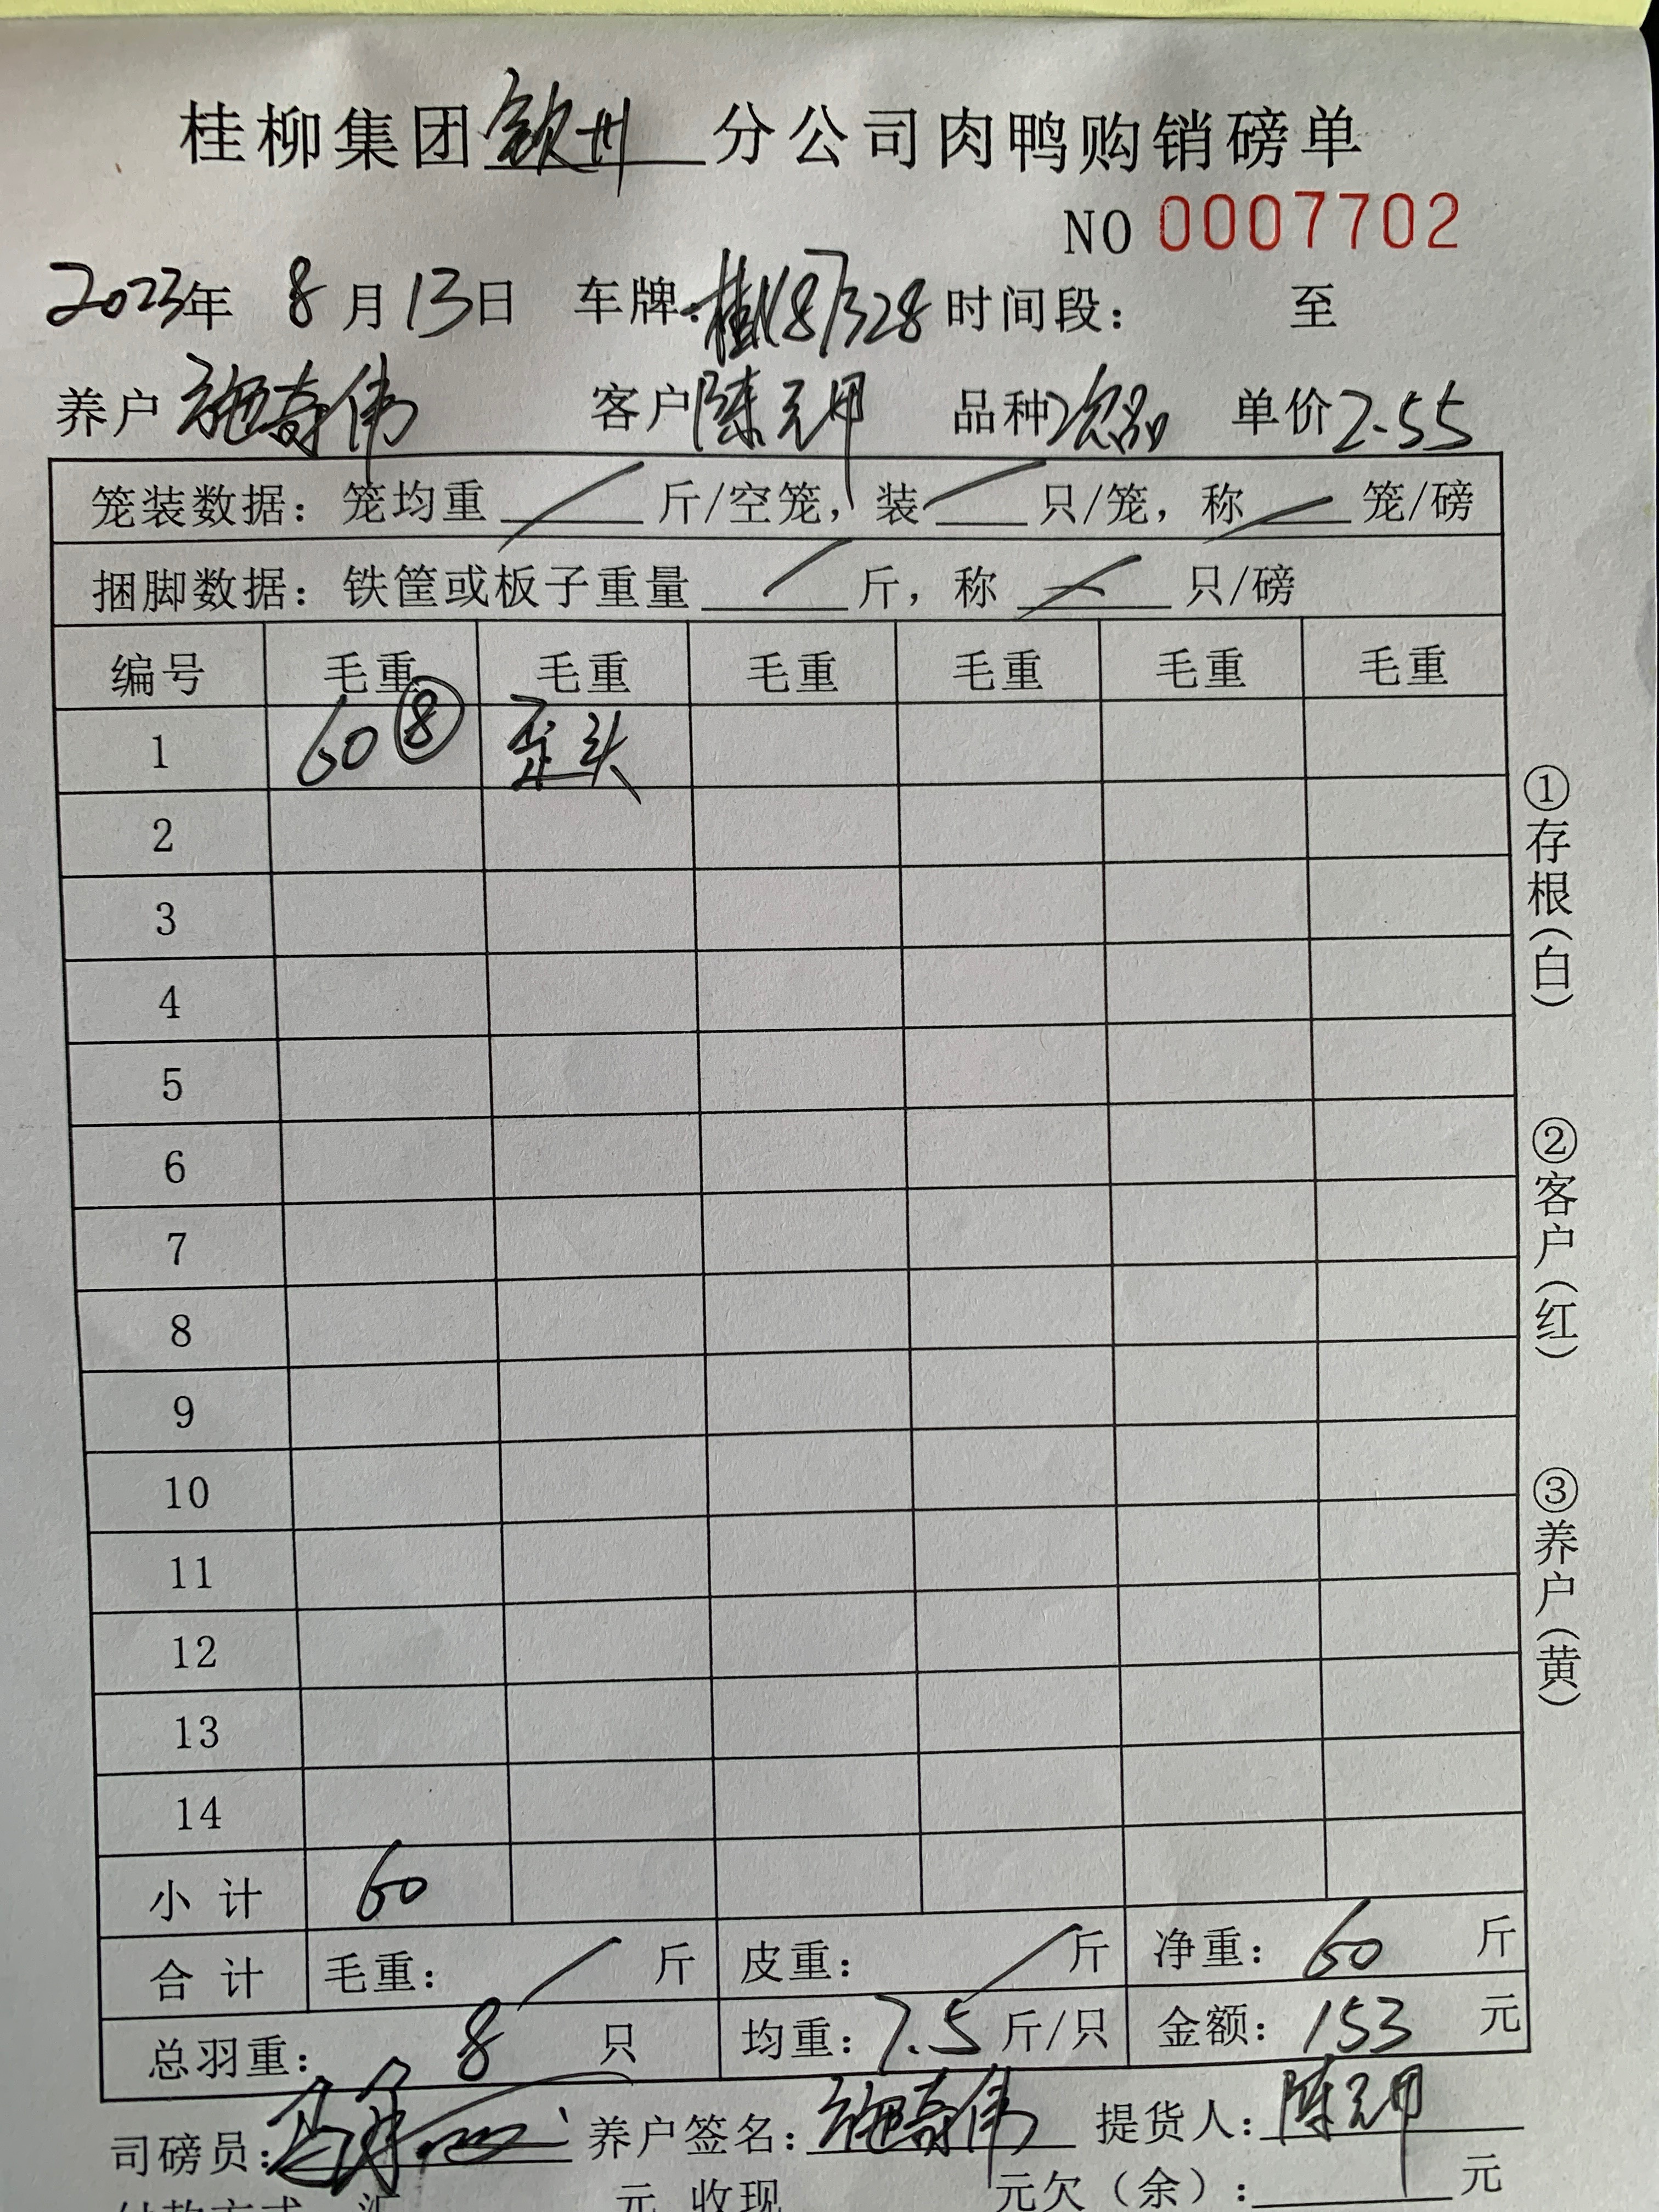 桂柳集团钦州分公司肉鸭购销磅单
NO 0007702
2023年 8月13日 车牌:桂K87328 时间段: 至
养户 施奇伟 客户 陈元 品种 次品 单价 2.55
笼装数据:笼均重 斤/空笼,装 只/笼,称 笼/磅
捆脚数据:铁筐或板子重量 斤,称 只/磅
编号 毛重 毛重 毛重 毛重 毛重 毛重
1 60⑧ 歪头
2
3
4
5
6
7
8
9
10
11
12
13
14
小计 60
合计 毛重: 斤 皮重: 斤 净重:60 斤
总羽重:8 只 均重:7.5 斤/只 金额:153 元
司磅员: 养户签名:施奇伟 提货人:陈元
付款方式 汇 元 收现 元欠(余): 元
①存根(白)
②客户(红)
③养户(黄)